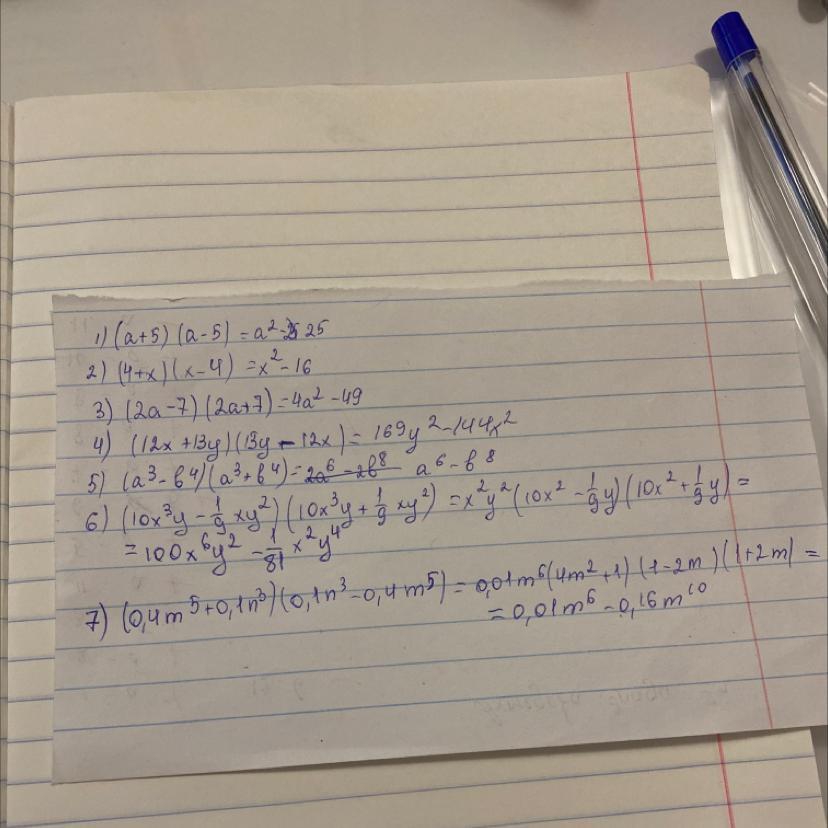 1) (a+5)(a-5) = a²-25
2) (4+x)(x-4) = x²-16
3) (2a-7)(2a+7) = 4a²-49
4) (12x+13y)(13y-12x) = 169y²-144x²
5) (a³-b⁴)(a³+b⁴) = 2a⁶-2b⁸ a⁶-b⁸
6) (10x³y - 1/9 xy²)(10x³y + 1/9 xy²) = x²y²(10x² - 1/9 y)(10x² + 1/9 y) =
= 100x⁶y² - 1/81 x²y⁴
7) (0,4m⁵+0,1n³)(0,1n³-0,4m⁵) = 0,01m⁶(4m²+1)(1-2m)(1+2m) =
= 0,01m⁶-0,16m¹⁰